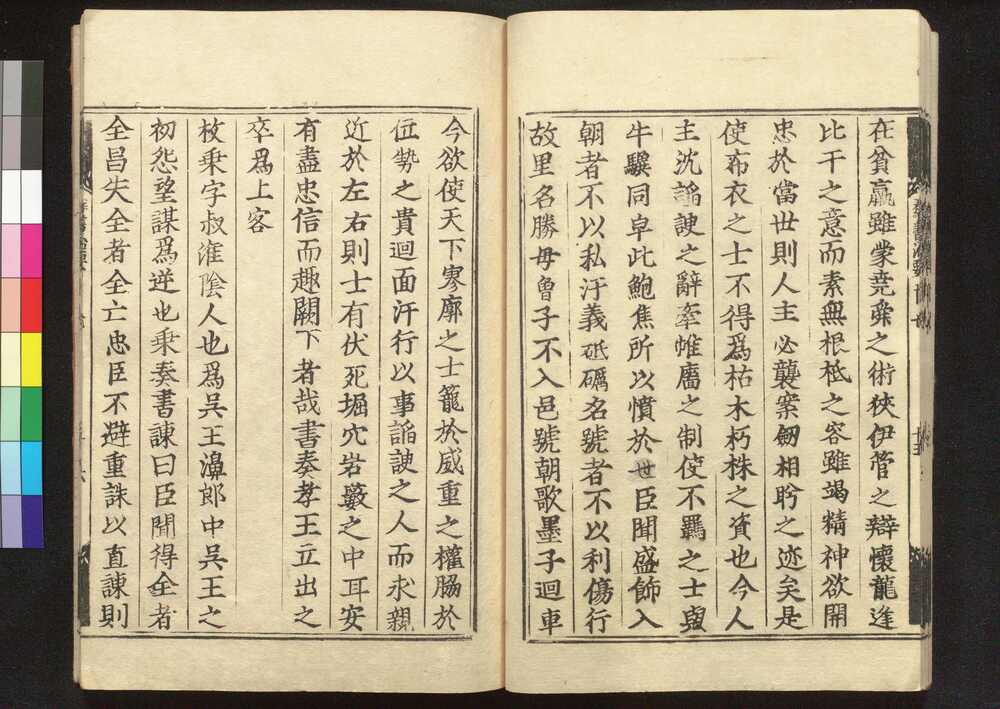 在貧羸雖蒙堯舜之術狹伊管之辯懷龍逢
比干之意而素無根柢之容雖竭精神欲開
忠於當世則人主必襲案劒相眄之迹矣是
使布衣之士不得爲枯木朽株之資也今人
主沈諂諛之辭牽帷廧之制使不羈之士與
牛驥同皁此鮑焦所以憤於世臣聞盛飾入
朝者不以私汙義砥礪名號者不以利傷行
故里名勝毋曾子不入邑號朝歌墨子迴車
今欲使天下寥廓之士籠於威重之權脇於
位勢之貴迴面汙行以事諂諛之人而求親
近於左右則士有伏死堀穴岩藪之中耳安
有盡忠信而趣闕下者哉書奏孝王立出之
卒爲上客
枚乘字叔淮陰人也爲吳王濞郎中吳王之
初怨望謀爲逆也乘奏書諫曰臣聞得全者
全昌失全者全亡忠臣不避重誅以直諫則